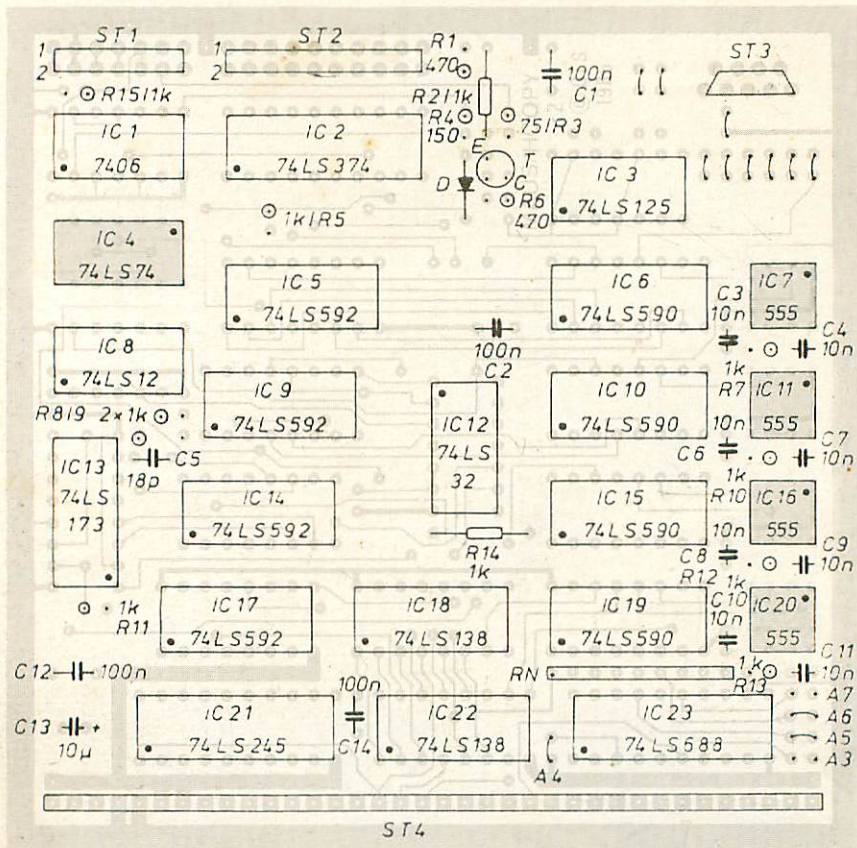 ST1
ST2
ST3
1
2
1
2
R1
470
R15/1k
R2/1k
R4
150
75/R3
100n
C1
IC 1
7406
IC 2
74LS374
E
T
C
D
R6
470
IC 3
74LS125
1k/R5
IC 4
74LS74
IC 5
74LS592
IC 6
74LS590
IC7
555
C3
10n
C4
10n
100n
C2
IC 8
74LS12
IC 9
74LS592
IC 10
74LS590
1k
R7
IC11
555
10n
C6
C7
10n
R8/9 2×1k
C5
18p
IC12
74LS
32
IC13
74LS
173
IC 14
74LS592
IC 15
74LS590
1k
R10
IC16
555
10n
C8
C9
10n
R14
1k
R12 1k
1k
R11
IC 17
74LS592
IC 18
74LS138
IC 19
74LS590
C10
10n
IC20
555
C11
10n
C12
100n
RN
1k
R13
C13
+
10µ
IC 21
74LS245
100n
C14
IC 22
74LS138
IC 23
74LS688
A7
A6
A5
A3
A4
ST4